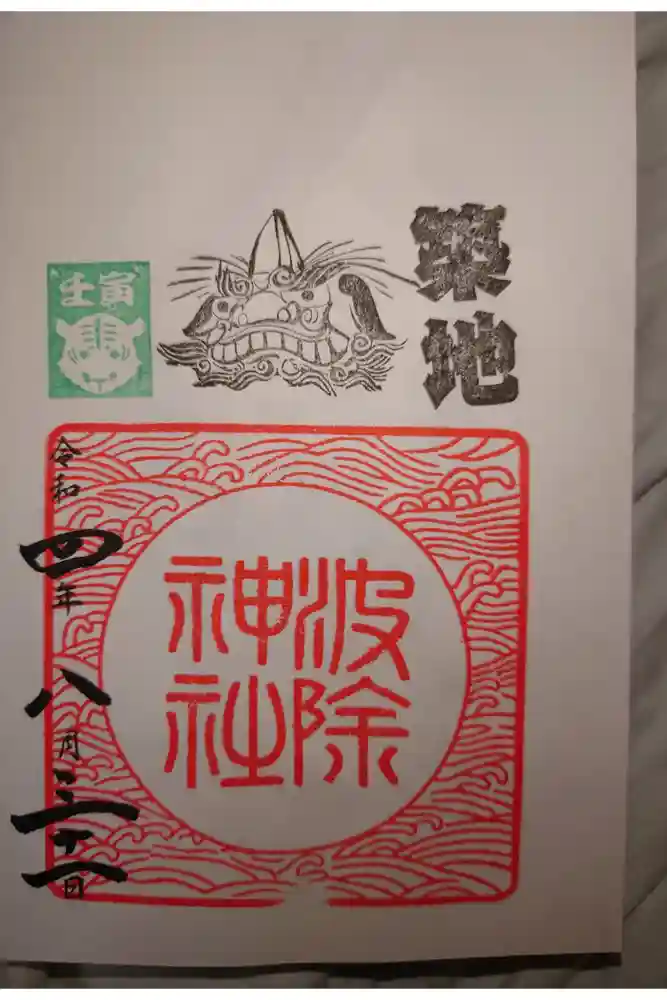 築地
壬寅
波除
神社
令和四年八月三十一日